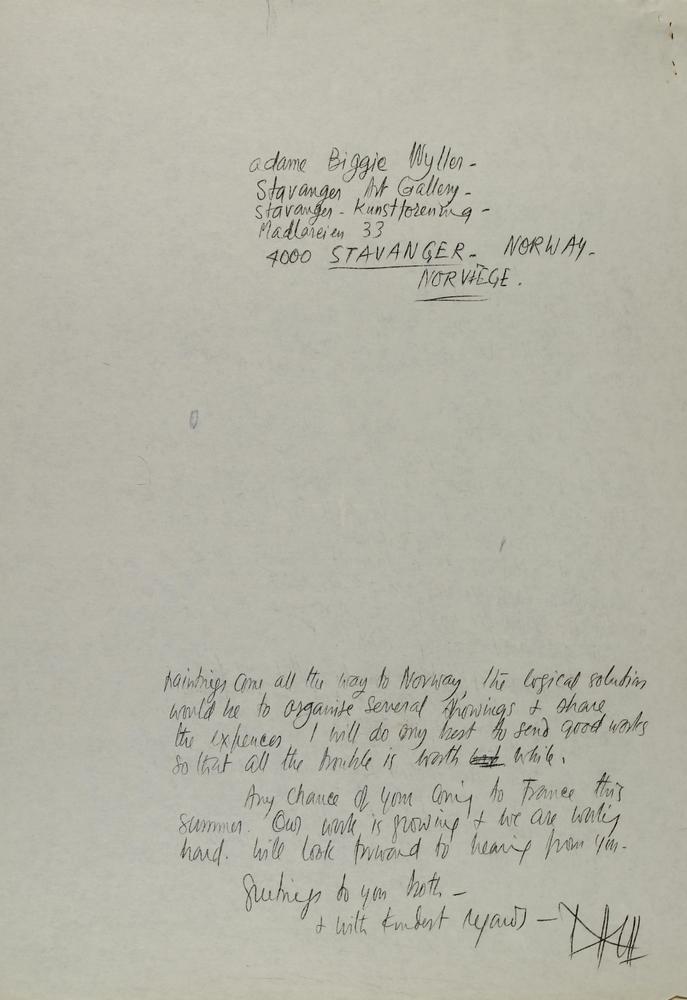 adame Biggie Wyller -
Stavanger Art Gallery -
Stavanger - Kunstforening -
Madlaveien 33
4000 STAVANGER - NORWAY -
NORVÈGE.
paintings come all the way to Norway, the logical solution
would be to organise several showings & share
the expences. I will do my best to send good works
so that all the trouble is worth while.
Any chance of your coming to France this
summer. Our work is growing & we are working
hard. Will look forward to hearing from you -
Greetings to you both -
& with kindest regards -